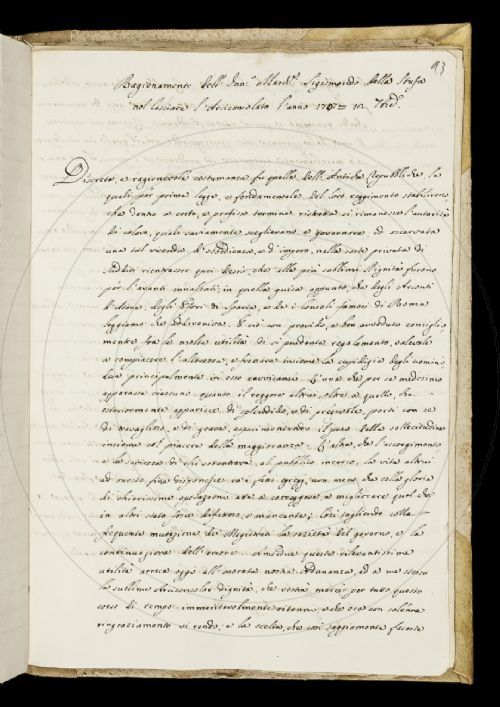 93
Ragionamento dell' Inn.º March.º Sigismondo della Stufa
nel lasciare l'Arciconsolato l'anno 1707 = in Firè.
Discreta, e ragionevole costumanza fu quella dell' Antiche Repubbliche, le
quali per prima legge, e fondamentale del loro reggimento stabilirono,
che dentro a certo, e prefisso termine ristretta si rimanesse l'autorità
di coloro, quali saviamente sceglievano a governare. Ed osservata
una tal vicenda d'obbedienza, e d'impero, nella sorte privata di
sudditi rientrasser quei stessi, che alla più sublime Dignità furono
per l'avanti innalzati, in quella guisa appunto, che degli Arconti
d'Atene, degli Efori di Sparta, e de i Consoli famosi di Roma
leggiamo che addiveniva. E ciò con provido, e ben avveduto consiglio
mentre fra le molte utilità di sì prudente regolamento, valevole
a compiacere l'alterezza, e frenare insieme la cupidigia degli uomini
due principalmente in esso ravvisansi. L'una che per se medesimo
apparasse ciascuno quanto il reggere altrui, oltre a quello, che
esteriormente apparisce di splendido, e di pregevole, porti con se
di travaglioso, e di grave, esperimentando il peso della sollecitudine
insieme col piacere della maggioranza. L'altra, che l'accorgimento
e la saviezza di chi sottentrava al pubblico incarco, la vita altrui
in molto
fiori egregi, non meno che colla gloria
di chiarissime operazioni atta a correggere, e migliorare quel che
in altri stato fosse difettoso, e mancante; Così togliendo colla
frequente mutazione de Magistrati la sazietà del governo, e la
continuazione dell' onore
queste rilevantissime
utilità arreca oggi all' onorata nostra Adunanza, ed a me stesso
la sublime Arciconsolar dignità, che vostra mercè per tutto questo
corso di tempo immeritevolmente ritenni, e che ora con solenne
ringraziamento vi rendo; e la scelta, che così saggiamente faceste